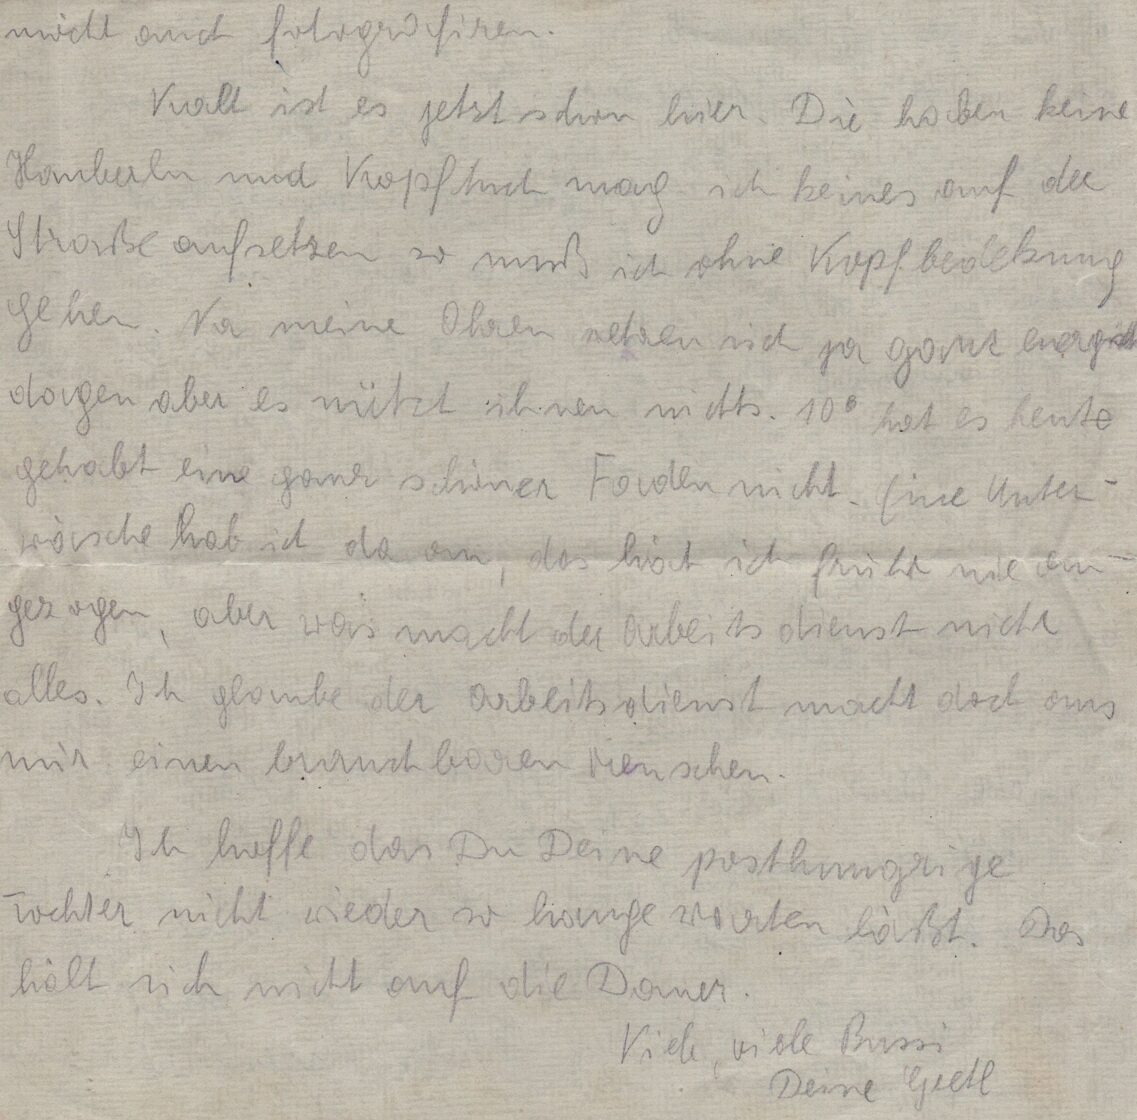 möcht auch fotografiren.
Kalt ist es jetzt schon hier. Die haben keine
Hauberln und Kopftuch mag ich keines auf der
Straße aufsetzen so muß ich ohne Kopfbedekung
gehen. Na meine Ohren setzen sich ja ganz energisch
dagen aber es nützt ihnen nichts. 10° hat es heute
gehabt eine ganz schöner Faden nicht. Eine Unter-
wäsche hab ich da an, das hät ich früher nie an-
gezogen, aber was macht der Arbeitsdienst nicht
alles. Ich glaube der Arbeitsdienst macht doch aus
mir einen brauchbaren Menschen.
Ich hoffe das Du Deine posthungrige
Tochter nicht wieder so lange warten läßt. Das
hält sich nicht auf die Dauer.
Viele, viele Bussi
Deine Gretl